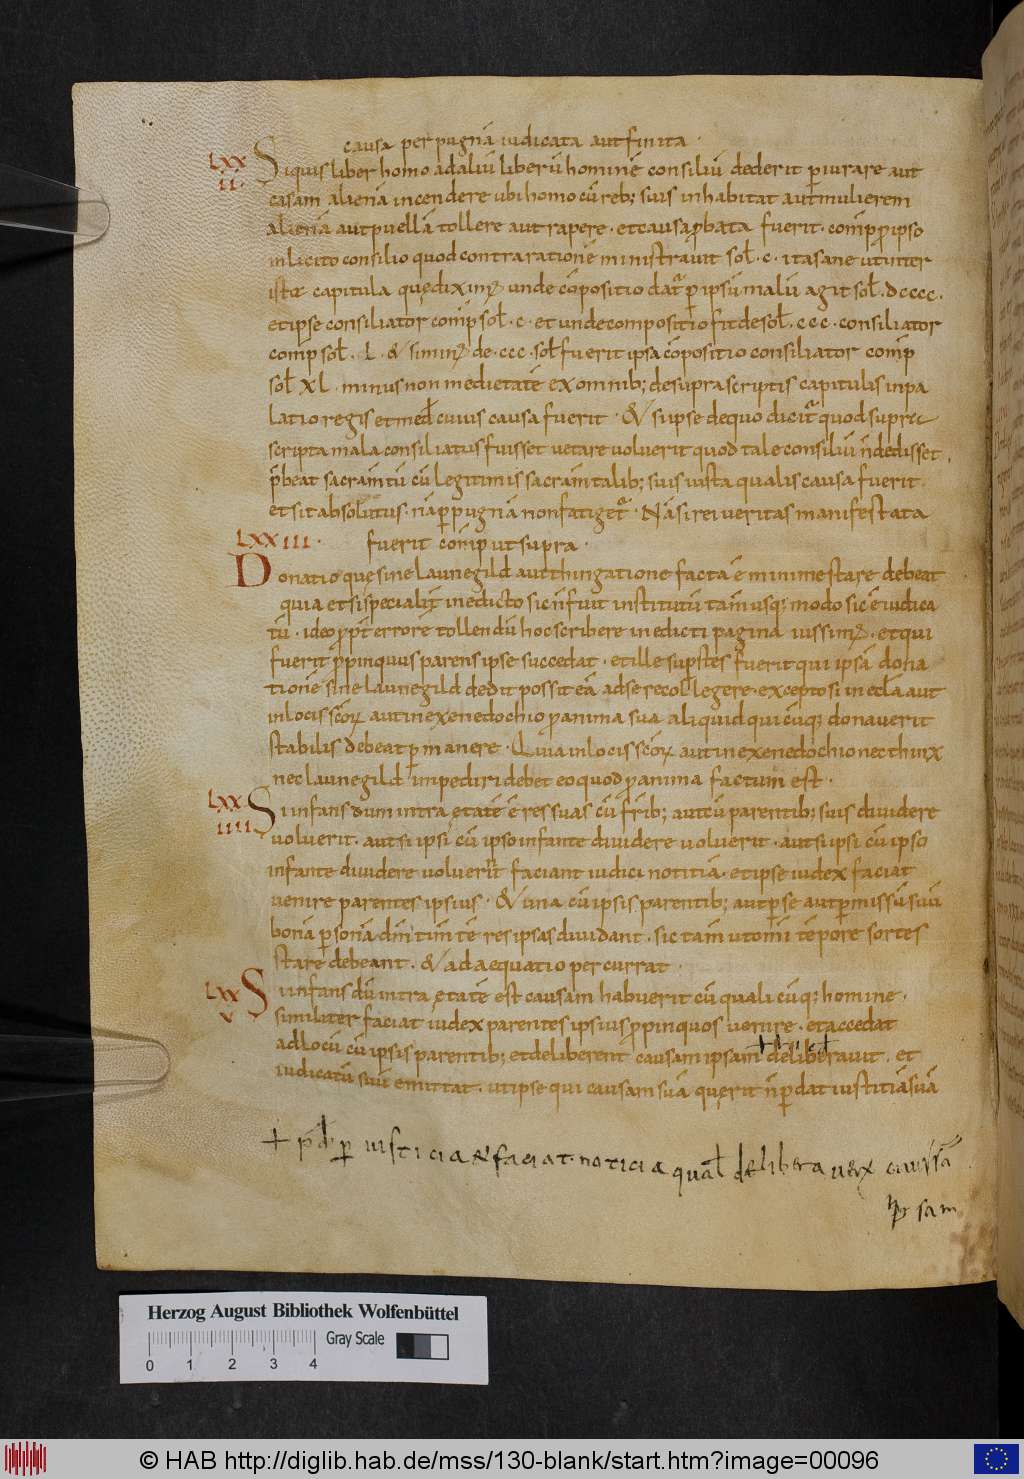 causa per pugnā iudicata aut finita ·
LXXII· Siquis liber homo ad aliū liberū hominē consiliū dederit ꝑiurare aut
casam alienā incendere ubi homo cū reb; suis inhabitat aut mulierem
alienā aut puellā tollere aut rapere · et causa ꝓbata fuerit · comꝑ ꝓ ipso
inlicito consilio quod contra rationē ministrauit sol̄ · c · ita sane ut inter
istœ capitula quę diximꝰ unde cōpositio dat ꝑ ipsū malū agit sol̄ . dcccc .
et ipse consiliator comp̄ sol̄ · c · et unde compositio fit de sol̄ . ccc · consiliator
comp sol̄ . L . & si minꝰ de · ccc · sol̄ fuerit ipsa cōpositio consiliator comp̄
sol̄ XL · minus non medietatē ex omnib; de suprascriptis capitulis in pa
latio regis et med̄ cuius causa fuerit · & si ipse de quo dicit quod supra
scripta mala consiliatus fuisset uetare uoluerit quod tale consiliū n̄ dedisset .
p̄beat sacramtū cū legitimis sacramtalib; suis iusta qualis causa fuerit .
et sit absolutus · nā ꝑ pugnā non fatiget · Nā si rei ueritas manifestata
fuerit comp̄ ut supra ·
LXXIII · Donatio quę sine launegild aut thingatione facta ē minime stare debeat
quia et si specialit̄ in edicto sic n̄ fuit institutū tam̄ usq; modo sic ē iudica
tū · ideo ꝓpt̄ errorē tollendū hoc scribere in edicti pagina iussimꝰ . et qui
fuerit ꝓpinquus parens ipse succedat · et ille supstes fuerit qui ipsā dona
tionē sine launegild dedit possit eā ad se recollegere · excepto si in ecl̄a aut
in locis sc̄orꝝ aut in exenedochio ꝓ anima sua aliquid quicūq; donauerit
stabilis debeat ꝑmanere · Quia in locis sc̄orꝝ aut in exenedochio nec thinx
nec launegild impediri debet eo quod ꝓ anima factum est ·
LXXIIII Si infans dum intra ętatē ē res suas cū fr̄ib; aut cū parentib; suis diuidere
uoluerit . aut si ipsi cū ipso infante diuidere uoluerit · aut si ipsi cū ipso
infante diuidere uoluerint faciant iudici notitiā . et ipse iudex faciat
uenire parentes ipsius · & una cū ipsis parentib; aut ꝑ se aut ꝑ missū suū
bonā ꝑsonā dm̄ tim̄tē res ipsas diuidant . sic tam̄ ut omi tēpore sortes
stare debeant . & adaequatio percurrat ·
LXXV Si infans dū intra ętatē est causam habuerit cū qualicūq; homine ·
similiter faciat iudex parentes ipsius ꝓpinquos uenire · et accedat
ad locū cū ipsis parentib; et deliberent causam ipsam deliberauit . et
iudicatū suū emittat . ut ipse qui causam suā quęrit n̄ ꝑdat iustitiā suā
+ ꝑ iusticia & faciat noticia qual̄